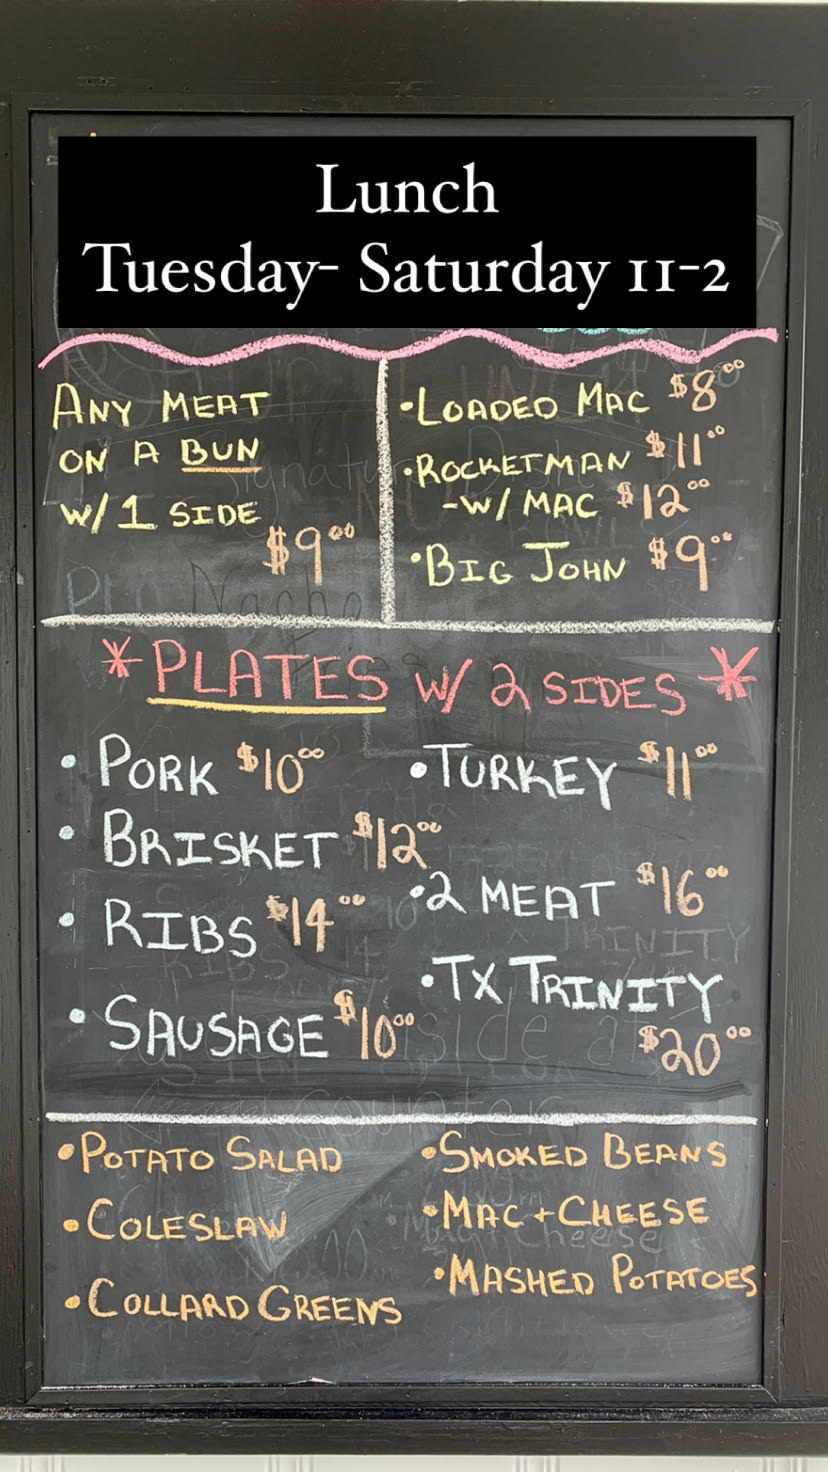 Lunch
Tuesday- Saturday 11-2
ANY MEAT
ON A BUN
W/ 1 SIDE
$9.00
• LOADED MAC $8.00
• ROCKETMAN $11.00
-W/ MAC $12.00
• BIG JOHN $9.00
* PLATES W/ 2 SIDES *
• PORK $10.00
• BRISKET $12.00
• RIBS $14.00
• SAUSAGE $10.00
• TURKEY $11.00
• 2 MEAT $16.00
• TX TRINITY
$20.00
• POTATO SALAD
• COLESLAW
• COLLARD GREENS
• SMOKED BEANS
• MAC + CHEESE
• MASHED POTATOES